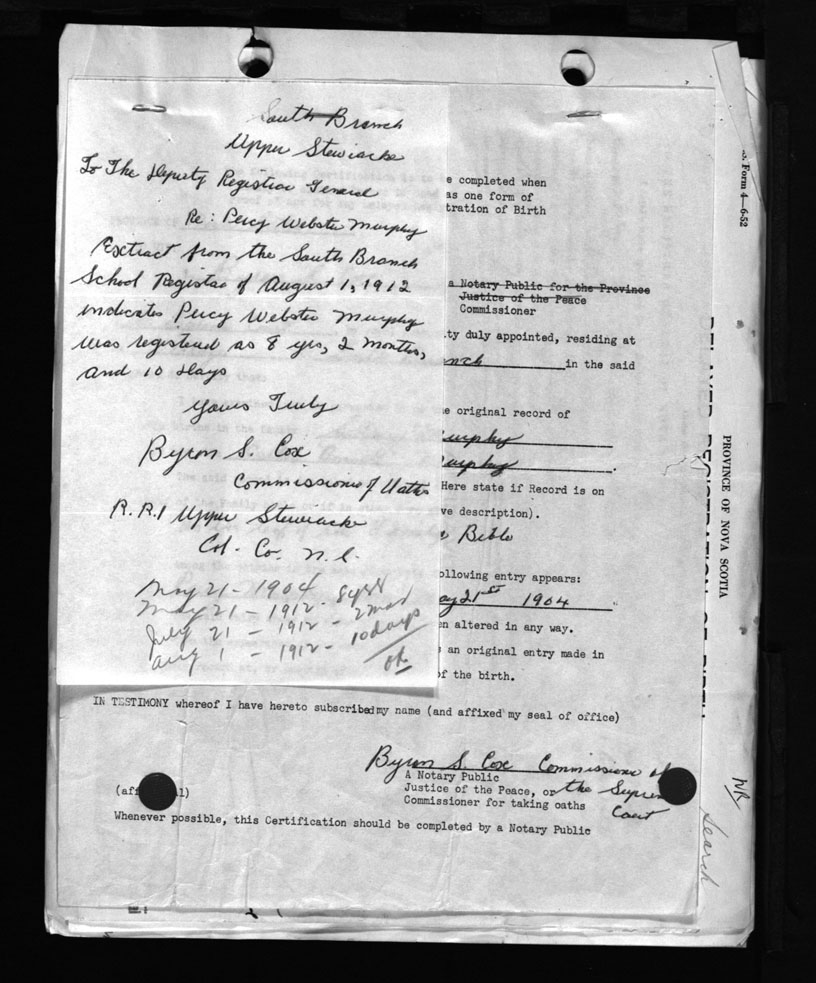 South Branch
Upper Stewiacke
To The Deputy Registrar General
Re: Percy Webster Murphy
Extract from the South Branch
School Register of August 1, 1912
indicates Percy Webster Murphy
was registered as 8 yrs, 2 months,
and 10 days
Yours Truly
Byron S. Cox
Commissioner of Oaths
R.R.1 Upper Stewiacke
Col. Co. N.S.
May 21 - 1904
May 21 - 1912 - 8 yrs
July 21 - 1912 - 2 mos
Aug 1 - 1912 - 10 days
ok
e completed when
as one form of
tration of Birth
a Notary Public for the Province
Justice of the Peace
Commissioner
ty duly appointed, residing at
nch in the said
e original record of
urphy
urphy.
Here state if Record is on
ve description).
Bible
ollowing entry appears:
ay 21st 1904.
en altered in any way.
s an original entry made in
of the birth.
IN TESTIMONY whereof I have hereto subscribed my name (and affixed my seal of office)
Byron S. Cox Commissioner of
A Notary Public
Justice of the Peace, or the Suprem
Commissioner for taking oaths Court
(aff l)
Whenever possible, this Certification should be completed by a Notary Public
Form 4—6-52
PROVINCE OF NOVA SCOTIA
DELAYED REGISTRATION OF BIRTH
NR
Search